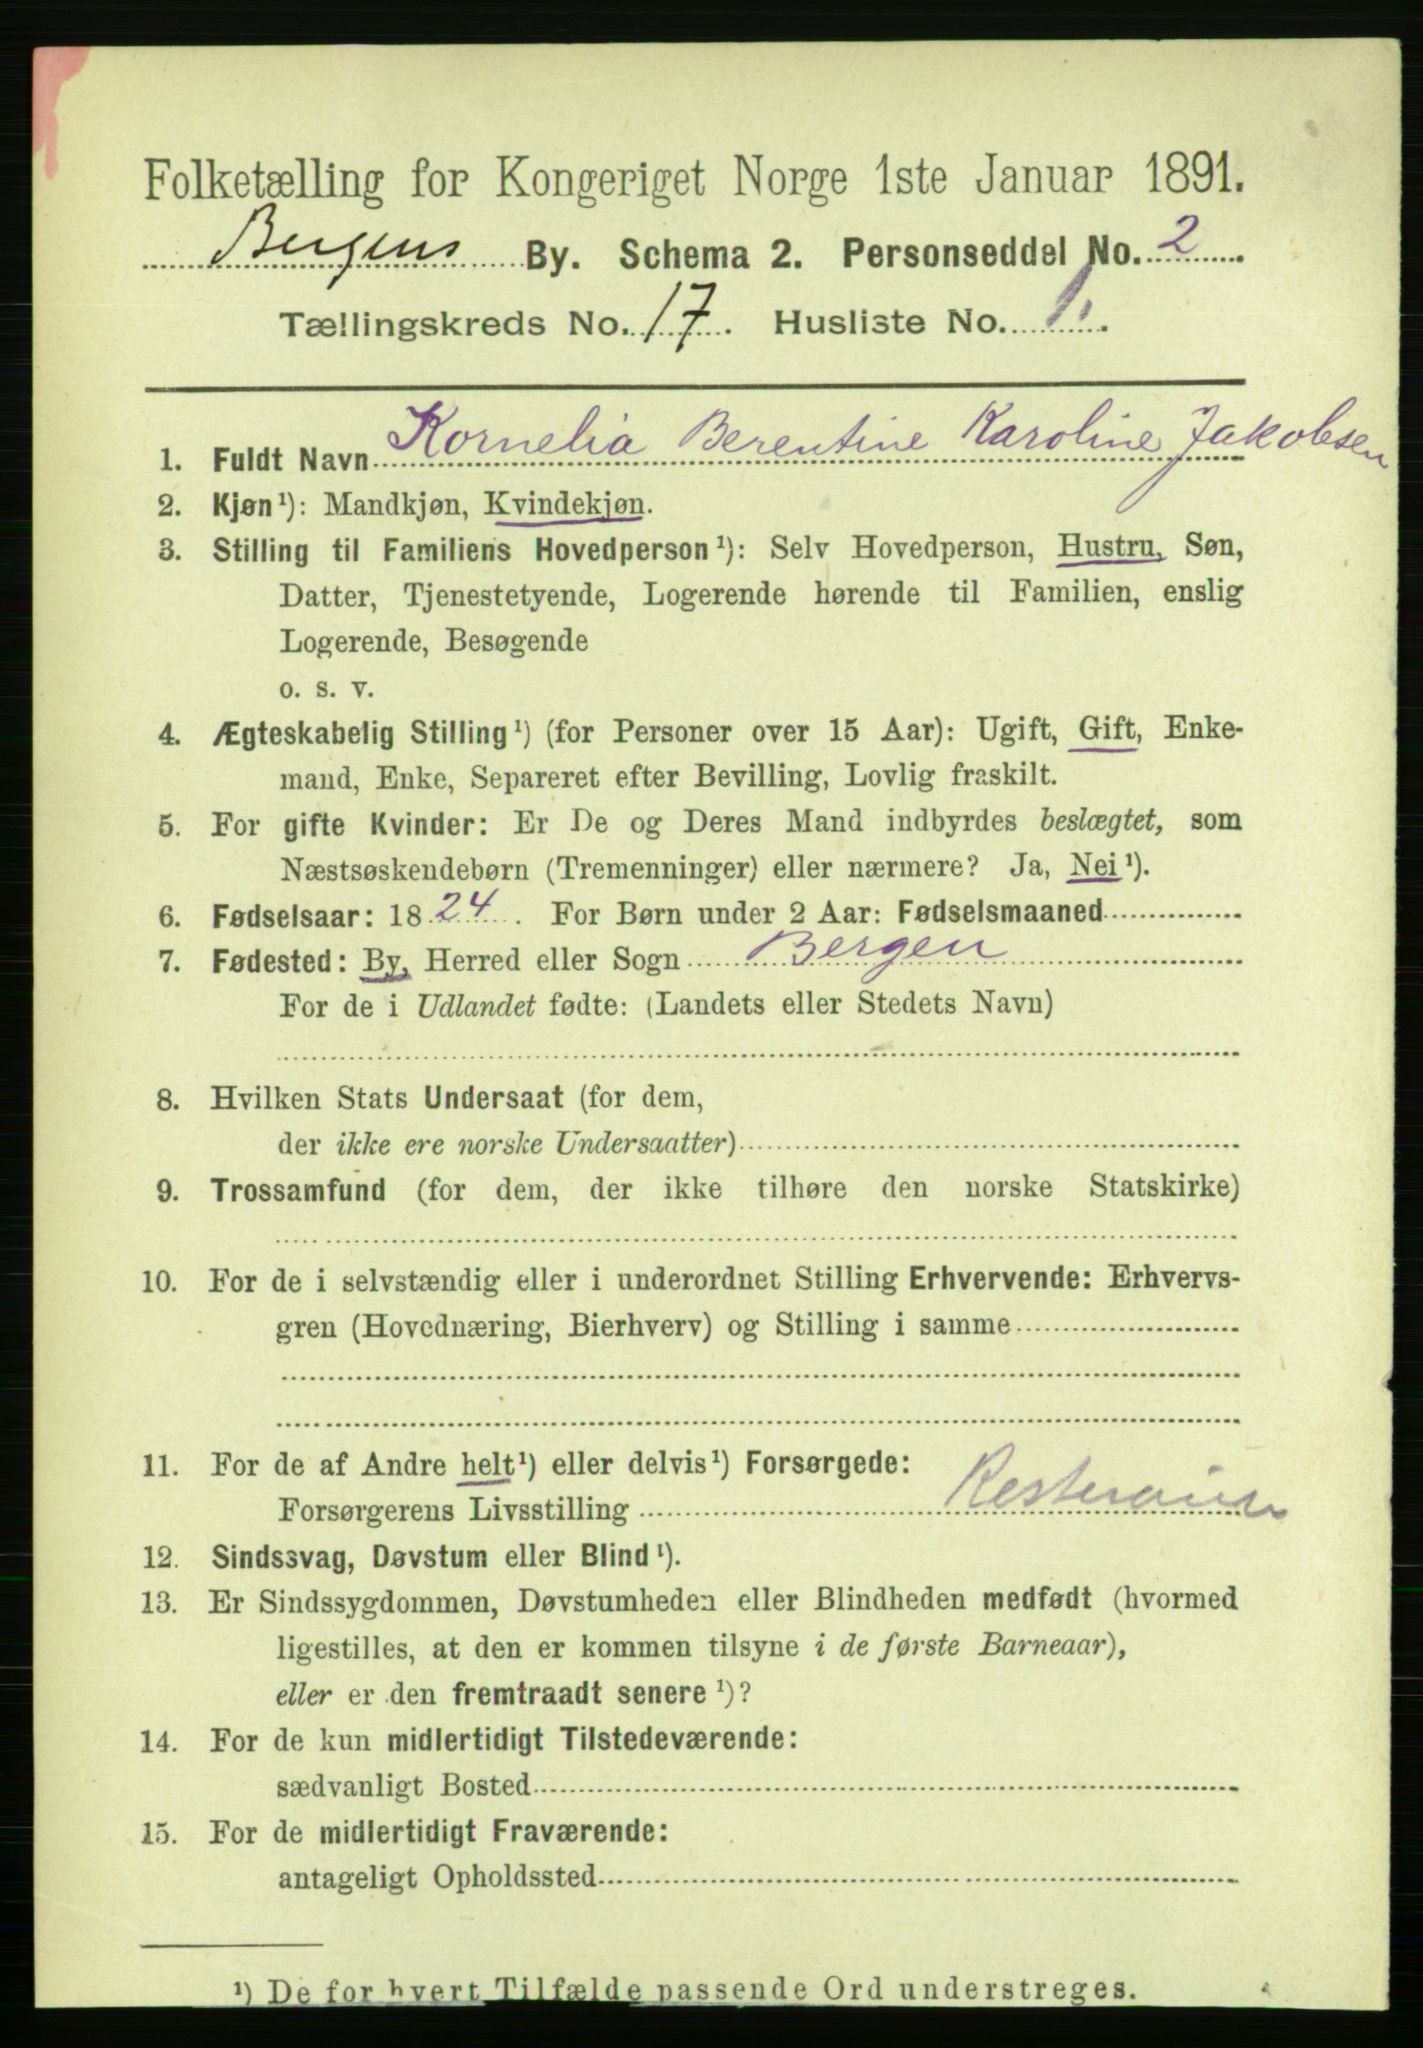 Folketælling for Kongeriget Norge 1ste Januar 1891.
Bergens By. Schema 2. Personseddel No. 2
Tællingskreds No. 17. Husliste No. 1.
1. Fuldt Navn Kornelia Berentine Karoline Jakobsen
2. Kjøn¹): Mandkjøn, Kvindekjøn.
3. Stilling til Familiens Hovedperson¹): Selv Hovedperson, Hustru, Søn,
Datter, Tjenestetyende, Logerende hørende til Familien, enslig
Logerende, Besøgende
o. s. v.
4. Ægteskabelig Stilling¹) (for Personer over 15 Aar): Ugift, Gift, Enke-
mand, Enke, Separeret efter Bevilling, Lovlig fraskilt.
5. For gifte Kvinder: Er De og Deres Mand indbyrdes beslægtet, som
Næstsøskendebørn (Tremenninger) eller nærmere? Ja, Nei¹).
6. Fødselsaar: 1824. For Børn under 2 Aar: Fødselsmaaned
7. Fødested: By, Herred eller Sogn Bergen
For de i Udlandet fødte: (Landets eller Stedets Navn)
8. Hvilken Stats Undersaat (for dem,
der ikke ere norske Undersaatter)
9. Trossamfund (for dem, der ikke tilhøre den norske Statskirke)
10. For de i selvstændig eller i underordnet Stilling Erhvervende: Erhvervs-
gren (Hovednæring, Bierhverv) og Stilling i samme
11. For de af Andre helt¹) eller delvis¹) Forsørgede:
Forsørgerens Livsstilling
12. Sindssvag, Døvstum eller Blind¹).
13. Er Sindssygdommen, Døvstumheden eller Blindheden medfødt (hvormed
ligestilles, at den er kommen tilsyne i de første Barneaar),
eller er den fremtraadt senere¹)?
14. For de kun midlertidigt Tilstedeværende:
sædvanligt Bosted
15. For de midlertidigt Fraværende:
antageligt Opholdssted
¹) De for hvert Tilfælde passende Ord understreges.